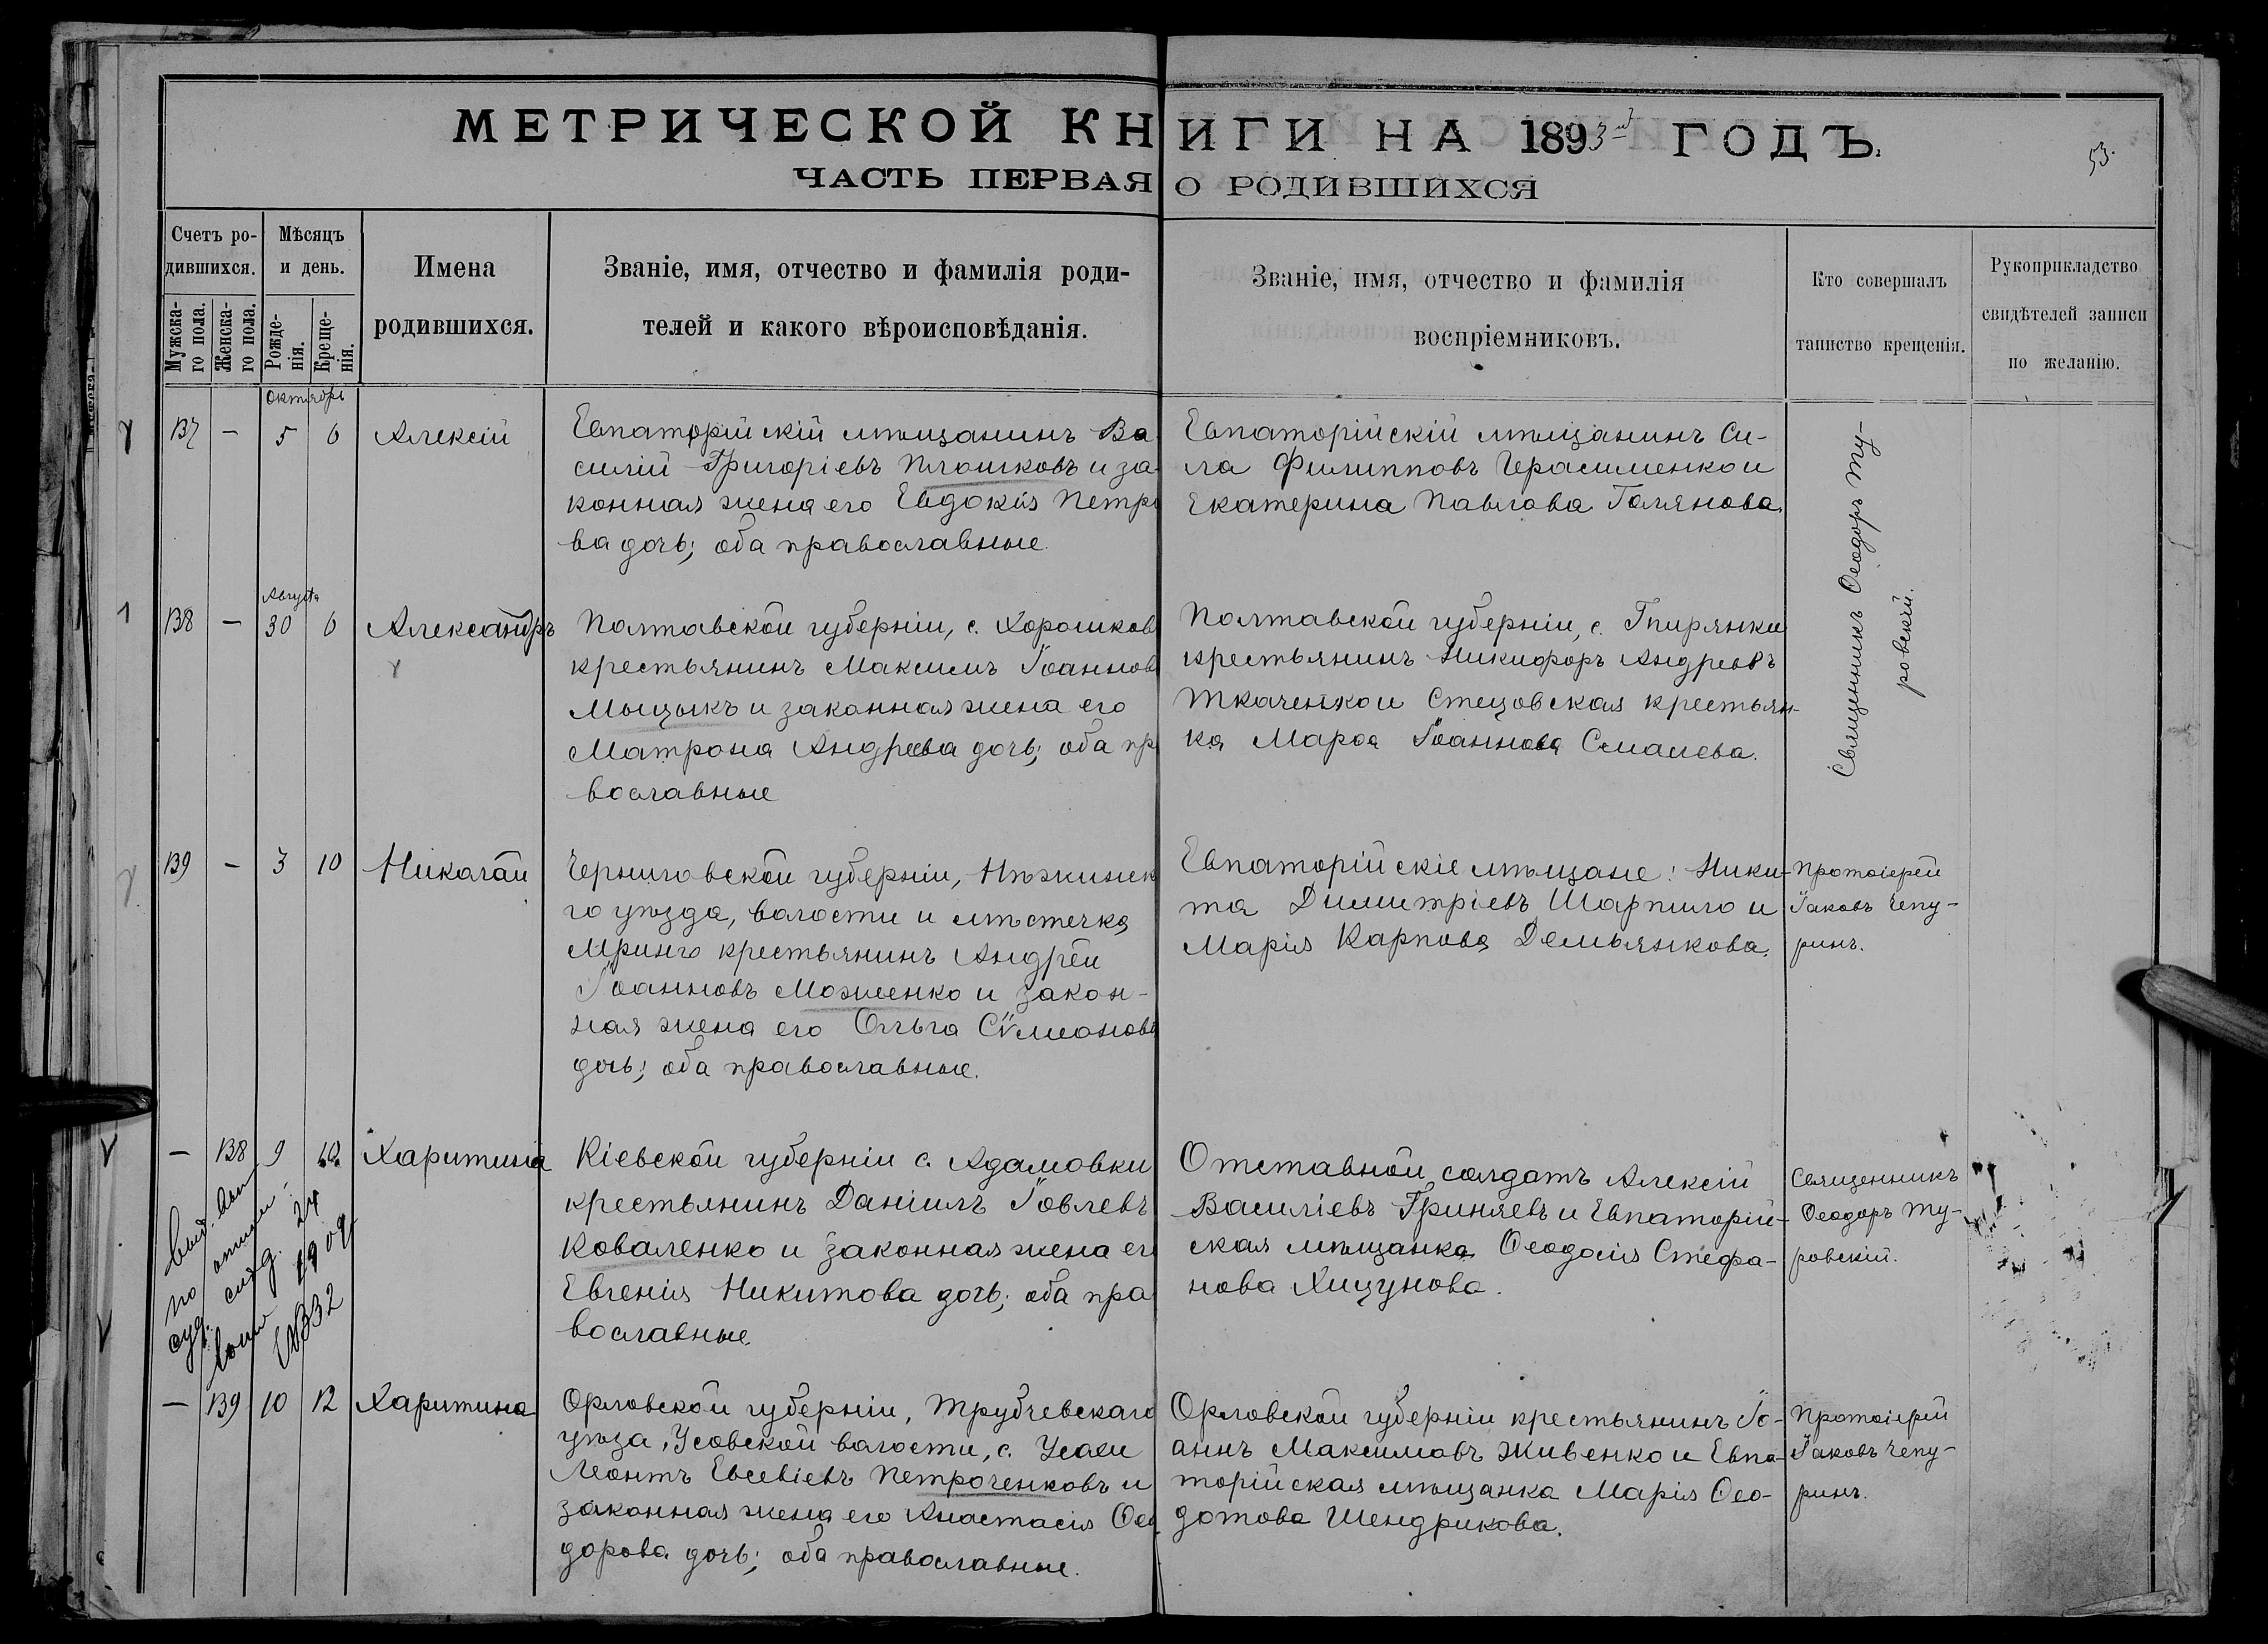 МЕТРИЧЕСКОЙ КНИГИ НА 1893й ГОДЪ.
53.
ЧАСТЬ ПЕРВАЯ О РОДИВШИХСЯ
Счетъ родившихся.
Мужскаго пола.
Женскаго пола.
Мѣсяцъ и день.
Рожденія.
Крещенія.
Имена
родившихся.
Званіе, имя, отчество и фамилія роди-
телей и какого вѣроисповѣданія.
Званіе, имя, отчество и фамилія
воспріемниковъ.
Кто совершалъ
таинство крещенія.
Рукоприкладство
свидѣтелей записи
по желанію.
Октябрь
137 – 5 6 Алексій
Евпаторійскій мѣщанинъ Ва
силій Григоріевъ Плошковъ и за
конная жена его Евдокія Петро
ва дочь; оба православные.
Евпаторійскій мѣщанинъ Си-
ла Филипповъ Герасименко и
Екатерина Павлова Голянова.
Священникъ Ѳеодоръ Ту-
ровскій.
Августа
138 – 30 6 Александръ
Полтавской губерніи, с. Хорошков
крестьянинъ Максимъ Іоаннов
Мыцыкъ и законная жена его
Матрона Андреева дочь; оба пр
вославные
Полтавской губерніи, с. Гпирянки
крестьянинъ Никифоръ Андреевъ
Ткаченко и Стецовская крестьян-
ка Марѳа Іоаннова
139 – 3 10 Николай
Черниговской губерніи, Нѣжинск
го уѣзда, волости и мѣстечка
Мринго крестьянинъ Андрей
Іоанновъ Моженко и закон-
ная жена его Ольга Сѵмеонова
дочь; оба православные.
Евпаторійскіе мѣщане: Ники-
та Димитріевъ Шарпило и
Марія Карпова Демьянкова.
Протоіерей
Іаковъ Чепу-
ринъ.
– 138 9 Харитина
Кіевской губерніи с. Адамовки
крестьянинъ Даніилъ Іовлевъ
Коваленко и законная жена ег
Евгенія Никитова дочь; оба пра
вославные.
Отставной солдатъ Алексій
Василіевъ Гриняевъ и Евпаторій-
ская мѣщанка Ѳеодосія Стефа-
нова Хицунова.
Священникъ
Ѳеодоръ Ту-
ровскій.
выд.
по
суд. след.
24
1909
№332
– 139 10 12 Харитина
Орловской губерніи, Трубчевскаго
уѣза, Усовской волости, с. Усохи
Леонтъ Евсевіевъ Петроченковъ и
законная жена его Анастасія Ѳео
дорова дочь; оба православные.
Орловской губерніи крестьянинъ Іо-
аннъ Максимовъ Живенко и Евпа-
торійская мѣщанка Марія Ѳео-
дотова Шендрикова.
Протоіерей
Іаковъ Чепу-
ринъ.